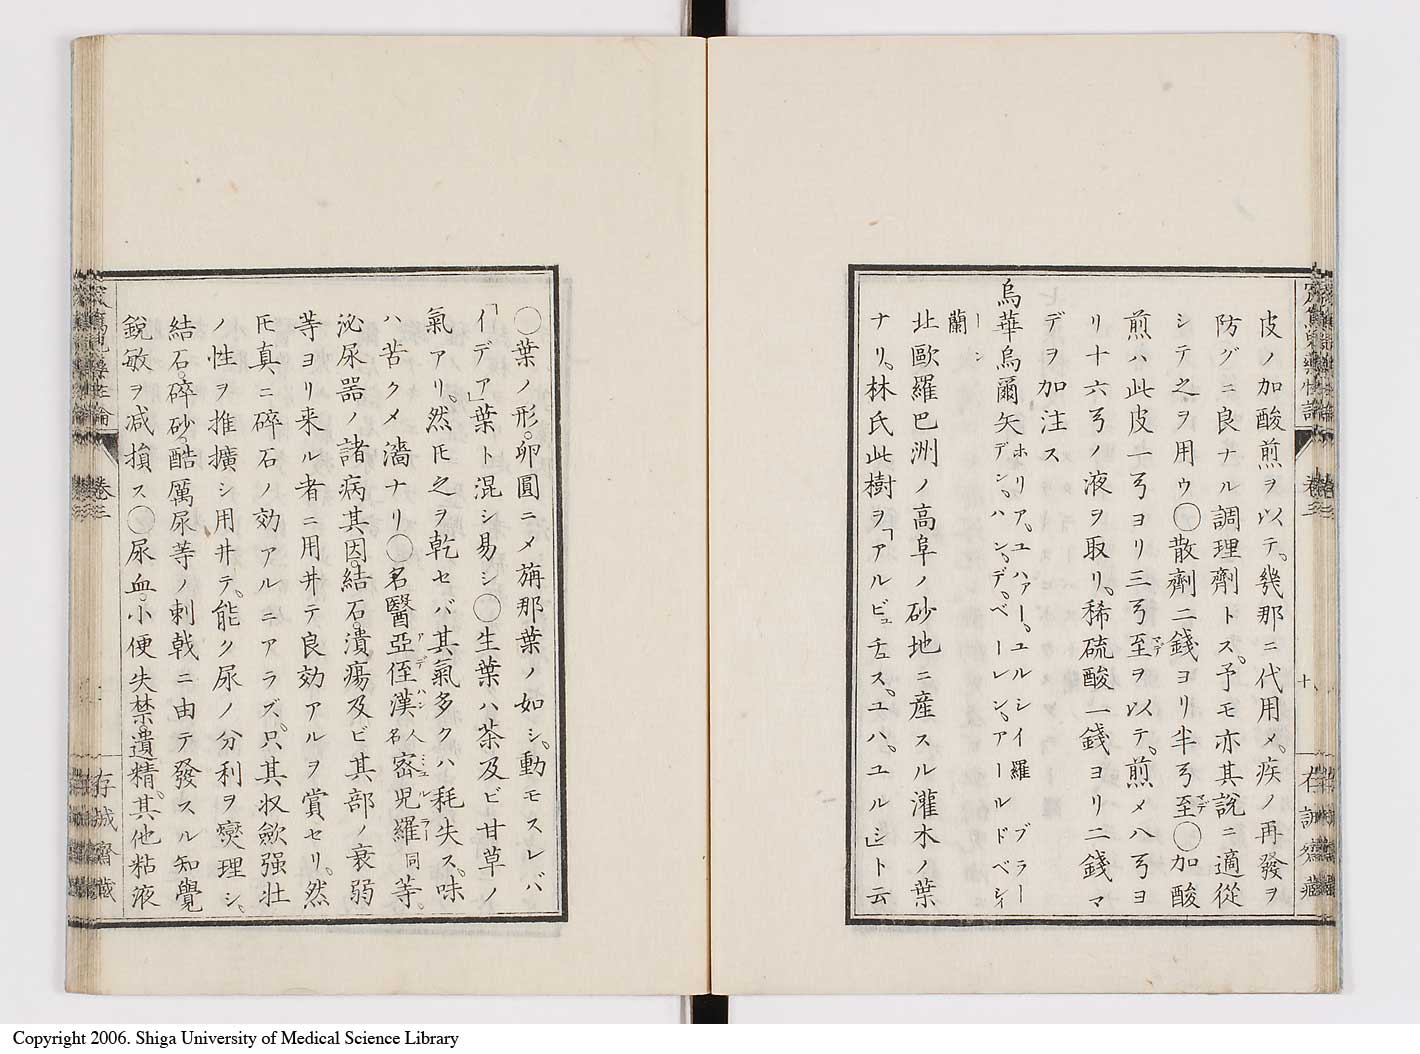 皮ノ加酸煎ヲ以テ、幾那ニ代用メ、疾ノ再發ヲ
防グニ良ナル調理劑トス、予モ亦其說ニ適從
シテ之ヲ用ウ◯散劑二錢ヨリ半弓至マデ◯加酸
煎ハ此皮一弓ヨリ三弓至マデヲ以テ、煎メ八弓ヨ
リ十六弓ノ液ヲ取リ、稀硫酸一錢ヨリ二錢マ
デヲ加注ス
烏華烏爾矢 ホリア、ユハァー、ユルシイ羅 ブラー
デン、ハン、デ、ベーレン、アールドベシイ
ーン蘭
北歐羅巴洲ノ高阜ノ砂地ニ産スル灌木ノ葉
ナリ、林氏此樹ヲ「アルビュチュス、ユハ、ユルシ」ト云
◯葉ノ形、卵圓ニメ旃那葉ノ如シ、動モスレバ
「イデア」葉ト混シ易シ◯生葉ハ茶及ビ甘草ノ
氣アリ、然𪜈之ヲ乾セバ其氣多クハ耗失ス、味
ハ苦クメ濇ナリ◯名醫亞侄漢アデハン人名密児羅ミュルラー同等、
泌尿器ノ諸病其因、結石、潰瘍及ビ其部ノ衰弱
等ヨリ来ル者ニ用井テ良効アルヲ賞セリ、然
𪜈真ニ碎石ノ効アルニアラズ、只其収歛强壮
ノ性ヲ推擴シ用井テ、能ク尿ノ分利ヲ燮理シ、
結石、碎砂、酷厲尿等ノ刺戟ニ由テ發スル知覺
銳敏ヲ減損ス◯尿血、小便失禁、遺精、其他粘液
卷三
十
存誠齋藏
卷三
存誠齋藏
Copyright 2006. Shiga University of Medical Science Library